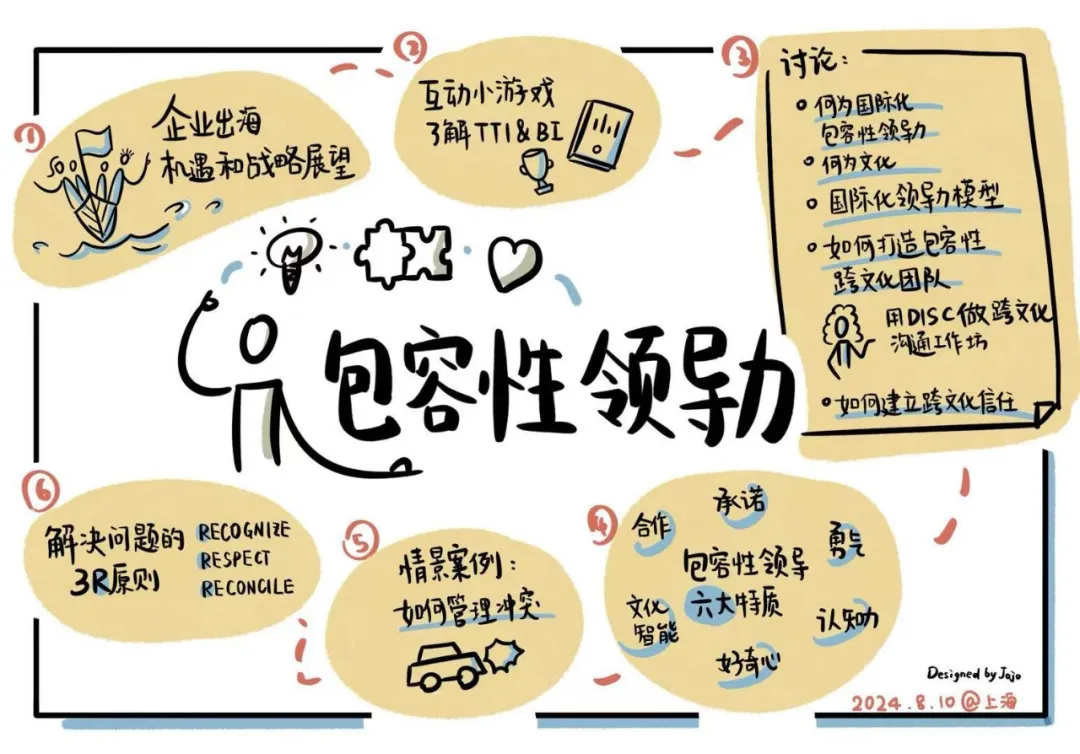 ①
企业出海
机遇和战略展望
②
互动小游戏
了解TTI&BI
③
讨论:
何为国际化
包容性领导力
何为文化
国际化领导力模型
如何打造包容性
跨文化团队
用DISC做跨文化
沟通工作坊
如何建立跨文化信任
包容性领导力
④
承诺
合作
勇气
包容性领导
六大特质
文化
智能
认知力
好奇心
⑤
情景案例:
如何管理冲突
⑥
解决问题的
3R原则
RECOGNIZE
RESPECT
RECONCILE
Designed by Jojo
2024.8.10@上海